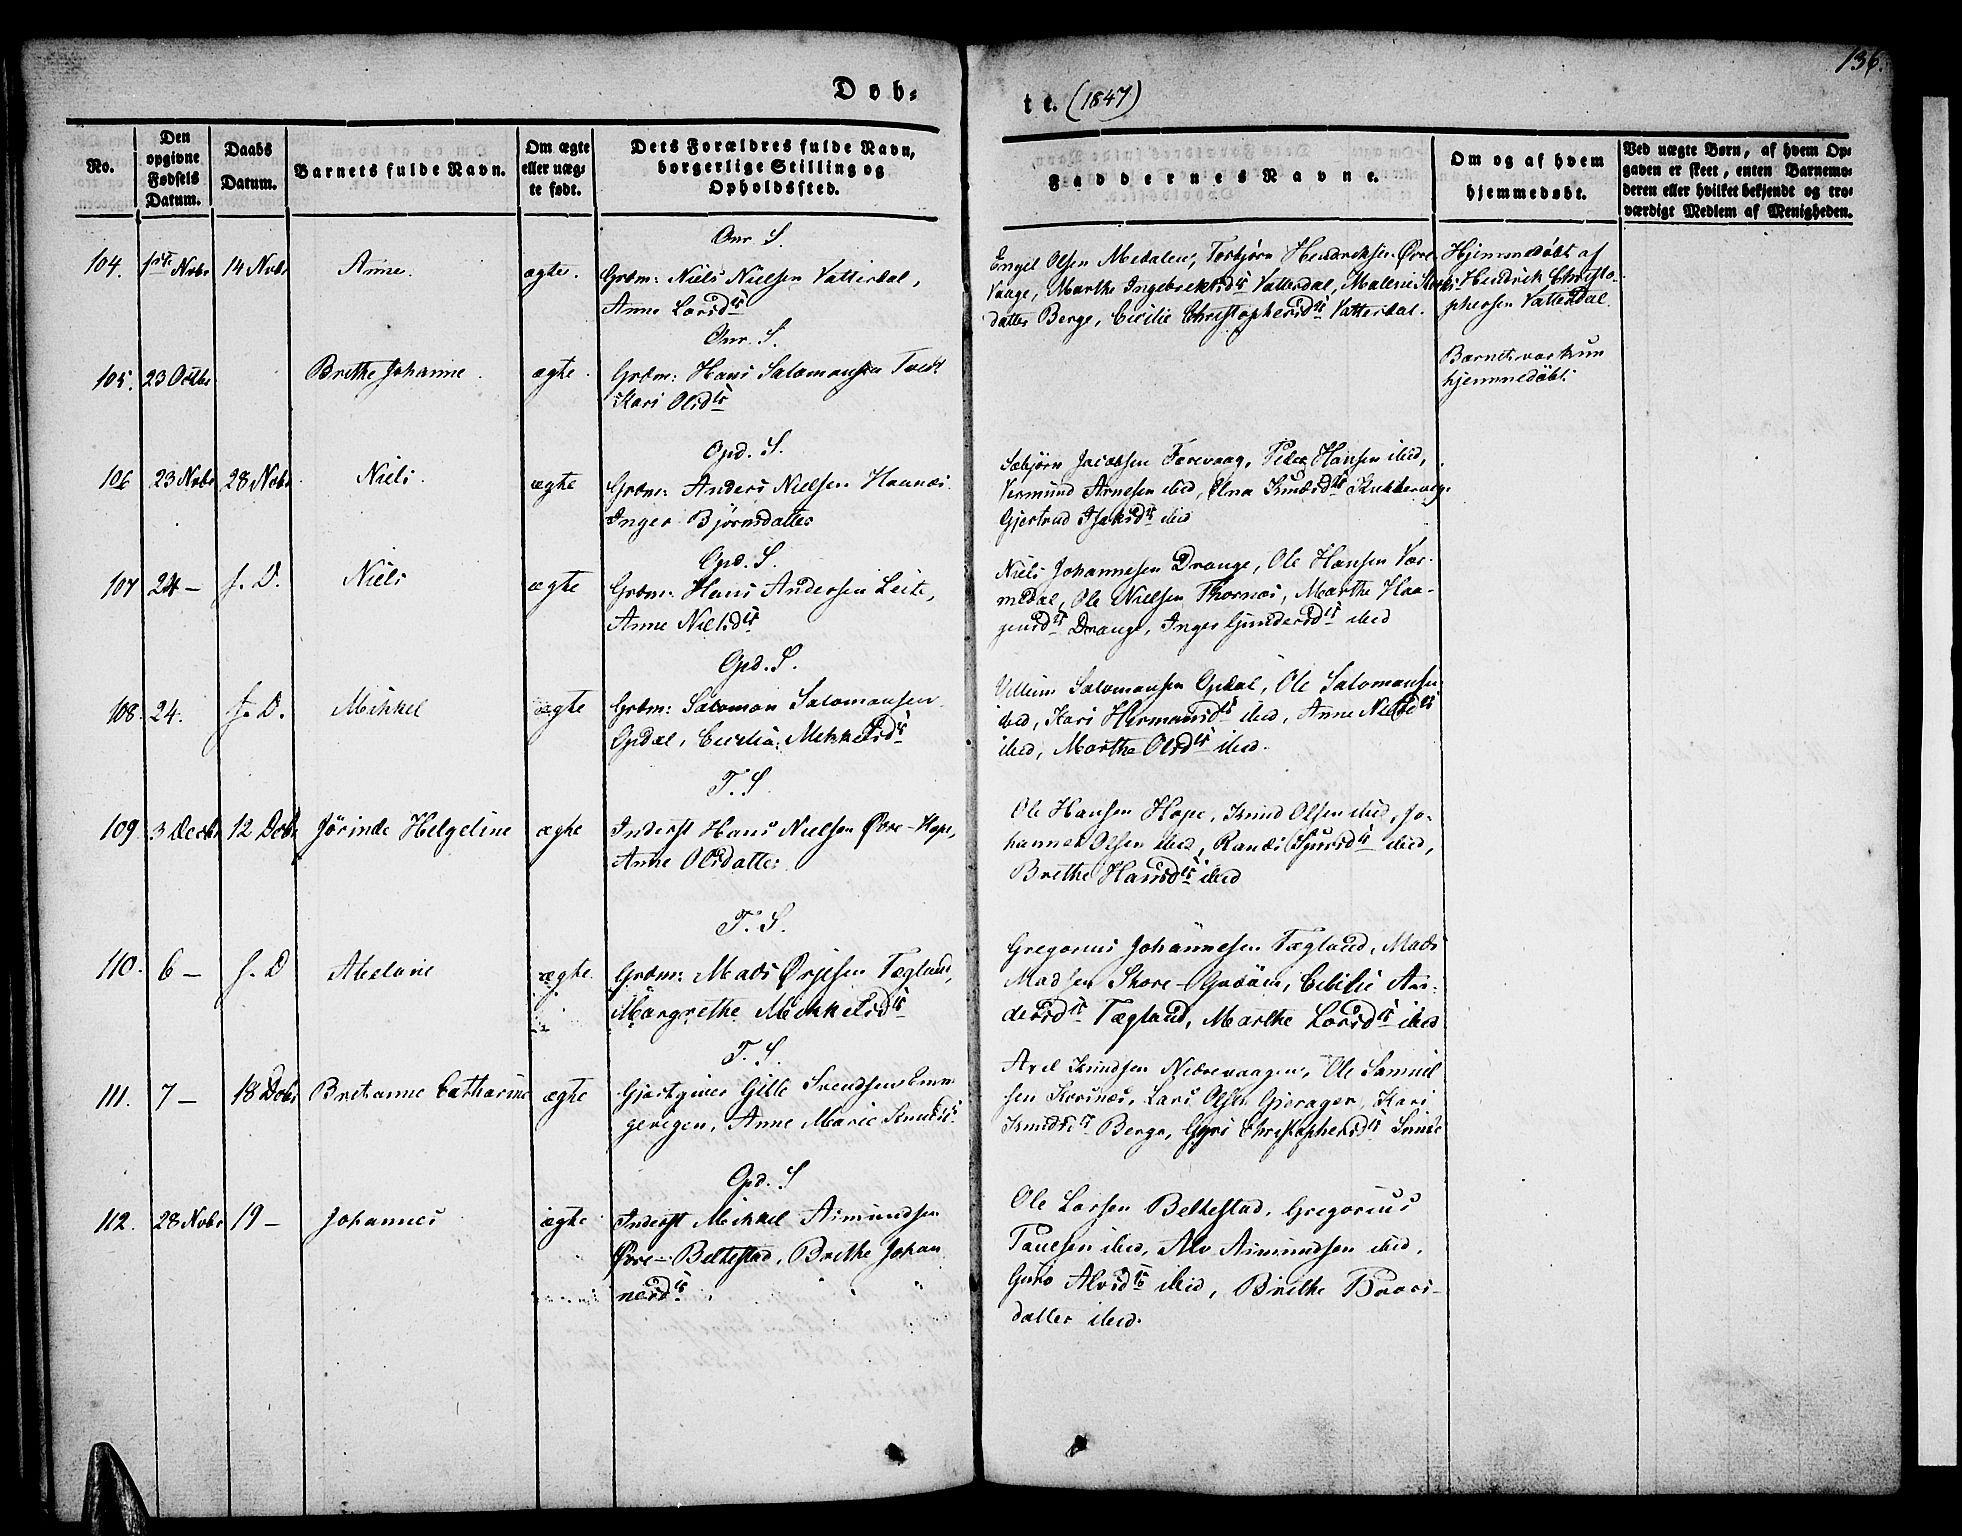 136.
Døb-
te. (1847)
No.
Den opgivne Fødsels Datum.
Daabs Datum.
Barnets fulde Navn.
Om ægte eller uæg-te født.
Dets Forældres fulde Navn, borgerlige Stilling og Opholdssted.
Faddernes Navne.
Om og af hvem hjemmedøbt.
Ved uægte Børn, af hvem Op-gaven er skeet, enten Barnemo-deren eller hvilket bekjendt og tro-værdigt Medlem af Menigheden.
Onr. S.
104. 1ste Novbr 14 Novbr Anne. ægte.
Grdm: Niels Nielsen Vatterdal,
Anne Larsdtr
Engel Olsen Medalen, Torbjørn Hendriksen Øvre-
Vaage, Marthe Ingebrektsdtr Vatterdal, Malene
datter Berge, Cicilie Christophersdtr Vatterdal.
Hjemmedøbt af
Hendrick Christo-
phersen Vatterdal
Onr. S.
105. 23 Octbr Brethe Johanne. ægte.
Grdm: Hans Salamonsen Tvedt
Kari Olsdtr
Barnet var kun
hjemmedøbt.
Opd. S.
106 23 Novbr 28 Novbr. Niels. ægte
Grdm: Anders Nielsen Haanæs
Inger Bjørnsdatter
Sæbjørn Jacobsen Færevaag, Peder Hansen ibid,
Vermund Arnesen ibid, Elna Knudsdtr
Gjertrud Isaksdtr ibid
Opd. S.
107 24 - s. D. Niels ægte
Grdm: Hans Andersen Leite,
Anne Nielsdtr
Niels Johannesen Drange, Ole Hansen Var-
medal, Ole Nielsen Thornæs, Marthe Haa-
gensdtr Drange, Inger Gundersdtr ibid
Opd. S.
108. 24. s. D. Mikkel ægte
Grdm: Salomon Salomonsen
Opdal, Cicilia Mikkelsdtr
Villum Salomonsen Opdal, Ole Salomonsen
ibid, Kari Hermansdtr ibid, Anne Nielsdtr
ibid, Marthe Olsdtr ibid.
T. S
109. 3 Decbr 12 Dcbr Jørinde Helgeline ægte
Inderst Hans Nielsen Øvre-Hope,
Anne Olsdatter
Ole Hansen Hope, Knud Olsen ibid, Jo-
hannes Olsen ibid, Randi Sjursdtr ibid,
Brethe Hansdtr ibid
T. S.
110. 6 - s. D Abelone ægte.
Grdm: Mads Ørjesen Tægland,
Margrethe Mikkelsdtr
Gregorius Johannesen Tægland, Mads
Madsen Store-Gudøen, Cicilie An-
dersdtr Tægland, Marthe Larsdtr ibid
T. S.
111. 7 - 18 Dcbr Bretanne Catharine ægte
Gjestgiver Gille Svendsen Emm
gevigen, Anne Marie Knudsdtr
Axel Knudsen Nedrevaagen, Ole Samuel
sen Korsnæs, Lars Olsen Gjerager, Kari
Knudsdtr Berge, Gyri Christophersdtr
Opd. S
112. 28 Novbr 19 - Johannes ægte
Inderst Mikkel Asmundsen
Øvre-Beltestad, Brethe Johan
nesdtr
Ole Larsen Beltestad, Gregorius
Paulsen ibid, Alv Asmundsen ibid,
Guro Alvsdtr ibid, Brithe Baars-
datter ibid.